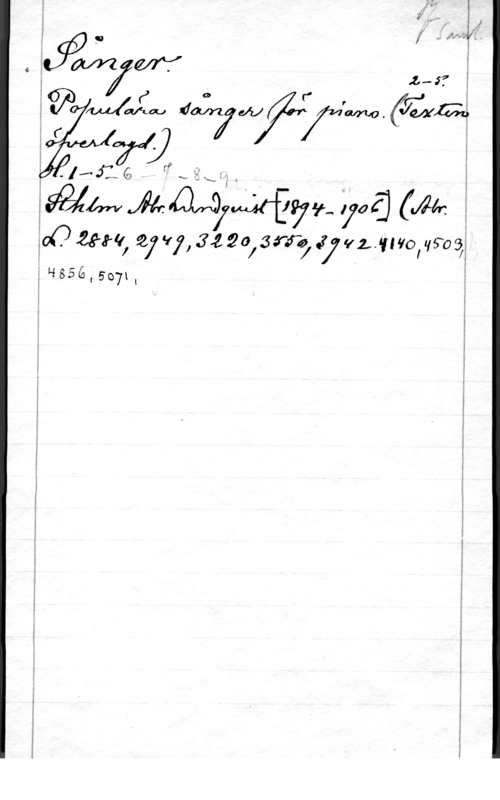 f Saml.
Sånger.
2-5:
Populära sånger för piano. (Texten
öfverlagd.)
H. 1-5- 6 - 7 - 8 - 9.
Sthlm Abr. Lundquist [1894-1906] (Abr.
L. 2884, 2949, 3220, 3550, 3942. 4140, 4503,
4856, 5071,